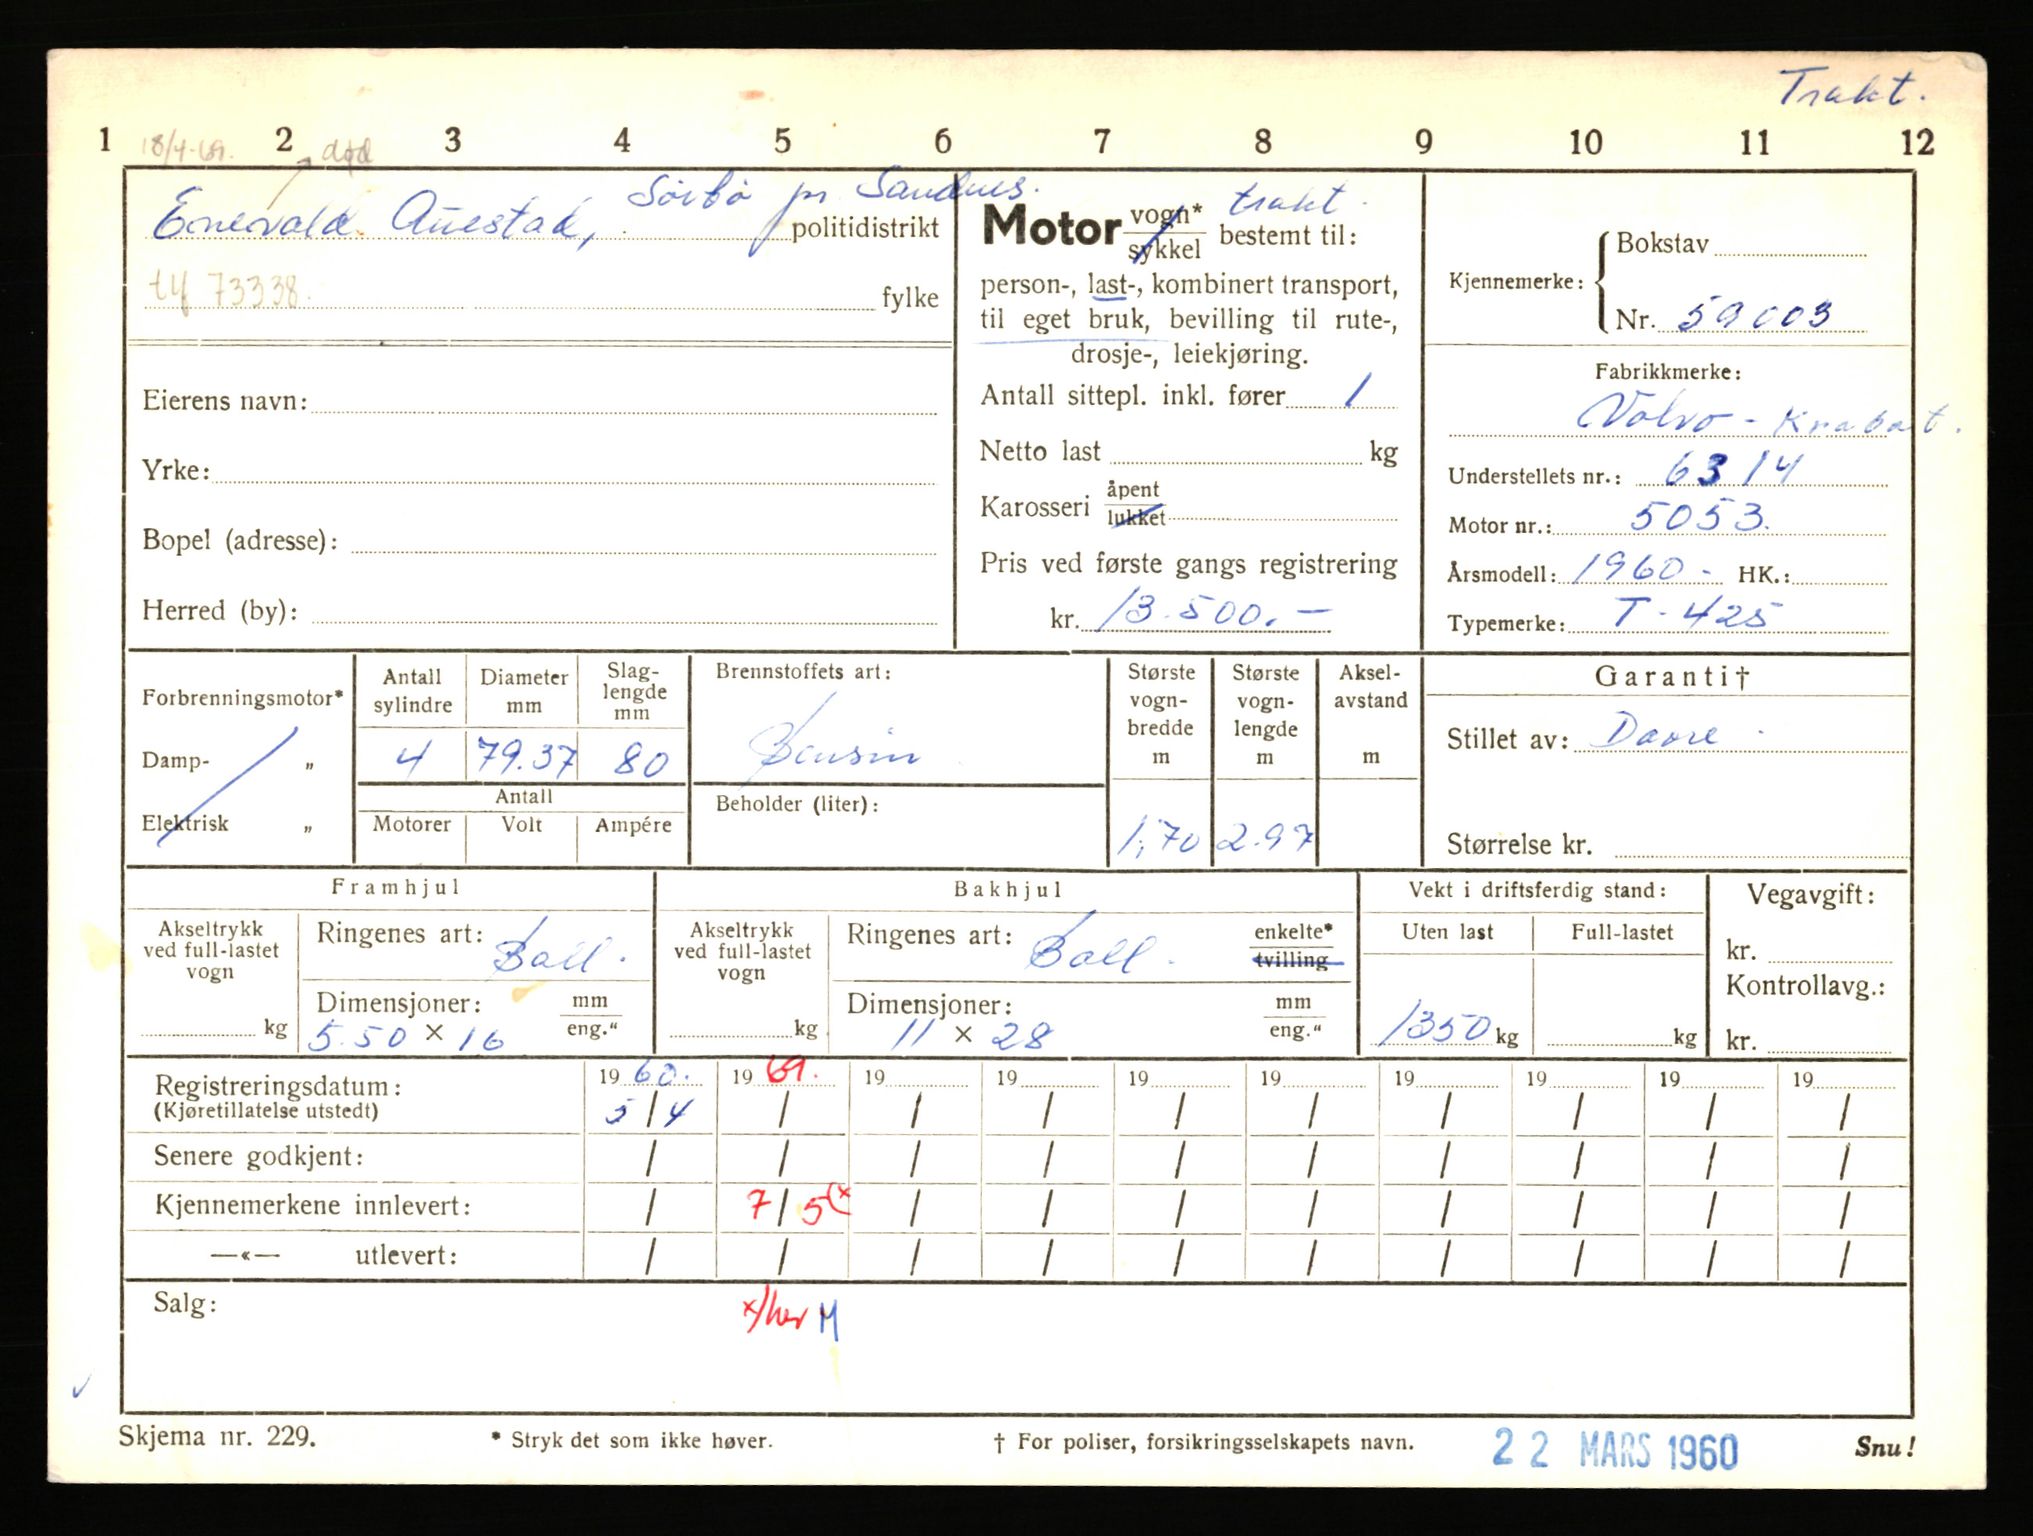 Trakt.
1 2 3 4 5 6 7 8 9 10 11 12
18/4-69. død
Enevald Auestad, Sørbø pr. Sandnes. politidistrikt
tlf 73338. fylke
Eierens navn:
Yrke:
Bopel (adresse):
Herred (by):
Motor vogn* / sykkel trakt. bestemt til:
person-, last-, kombinert transport,
til eget bruk, bevilling til rute-,
drosje-, leiekjøring.
Antall sittepl. inkl. fører 1
Netto last kg
Karosseri åpent / lukket
Pris ved første gangs registrering
kr. 13.500.-
Kjennemerke: Bokstav
Nr. 59003
Fabrikkmerke:
Volvo - Krabat.
Understellets nr.: 6314
Motor nr.: 5053.
Årsmodell: 1960 - HK.:
Typemerke: T-425
Forbrenningsmotor*
Damp- „
Elektrisk „
Antall sylindre 4
Diameter mm 79.37
Slag-lengde mm 80
Antall
Motorer Volt Ampére
Brennstoffets art:
Bensin
Beholder (liter):
Største vogn-bredde m 1,70
Største vogn-lengde m 2.97
Aksel-avstand m
Garanti†
Stillet av:
Størrelse kr.
Framhjul
Akseltrykk ved full-lastet vogn kg
Ringenes art: Ball.
Dimensjoner: mm / eng."
5.50 × 16
Bakhjul
Akseltrykk ved full-lastet vogn kg
Ringenes art: Ball. enkelte* / tvilling
Dimensjoner: mm / eng."
11 × 28
Vekt i driftsferdig stand:
Uten last Full-lastet
1350 kg kg
Vegavgift:
kr.
Kontrollavg.:
kr.
Registreringsdatum: 19 60. 19 69. 19 19 19 19 19 19 19 19
(Kjøretillatelse utstedt) 5/4 / / / / / / / / /
Senere godkjent: / / / / / / / / / /
Kjennemerkene innlevert: / 7/5(x / / / / / / / /
—«— utlevert: / / / / / / / / / /
Salg: x/her M
Skjema nr. 229. * Stryk det som ikke høver. † For poliser, forsikringsselskapets navn. 22 MARS 1960 Snu!